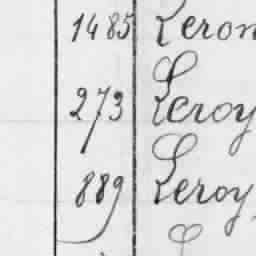 1485 Leron
273 Leroy
889 Leroy